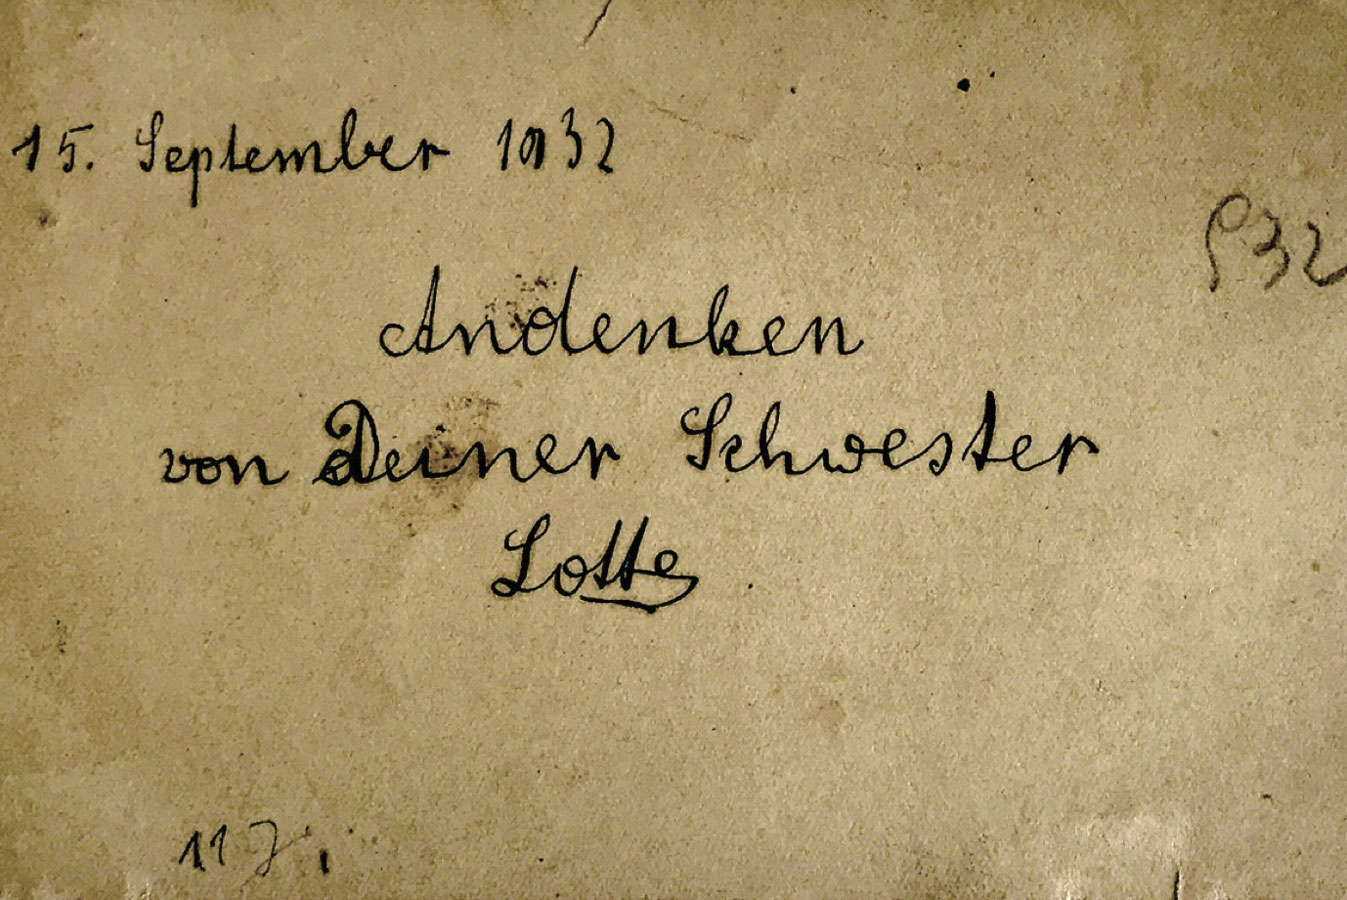 15. September 1932
932
Andenken
von Deiner Schwester
Lotte
11 J.